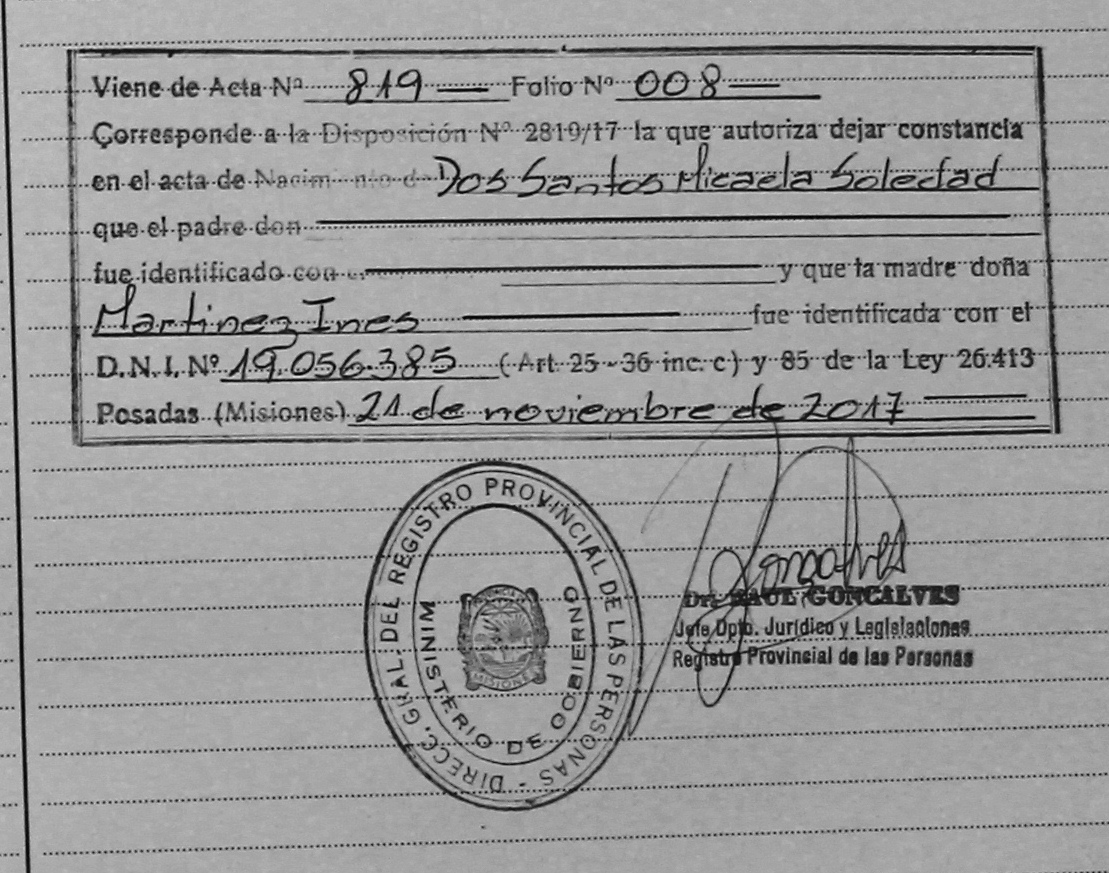 Viene de Acta Nº 819 Folio Nº 008
Corresponde a la Disposición Nº 2819/17 la que autoriza dejar constancia
en el acta de Nacimiento de Dos Santos Micaela Soledad
que el padre don
fue identificado con el y que la madre doña
Martinez Ines fue identificada con el
D.N.I. Nº 19.056.385 (Art 25-36 inc. c) y 85 de la Ley 26.413
Posadas (Misiones) 21 de noviembre de 2017
DIRECC. GRAL. DEL REGISTRO PROVINCIAL DE LAS PERSONAS -
MINISTERIO DE GOBIERNO
MISIONES
Goncalves
Dr. RAUL GONCALVES
Jefe Dpto. Jurídico y Legislaciones
Registro Provincial de las Personas